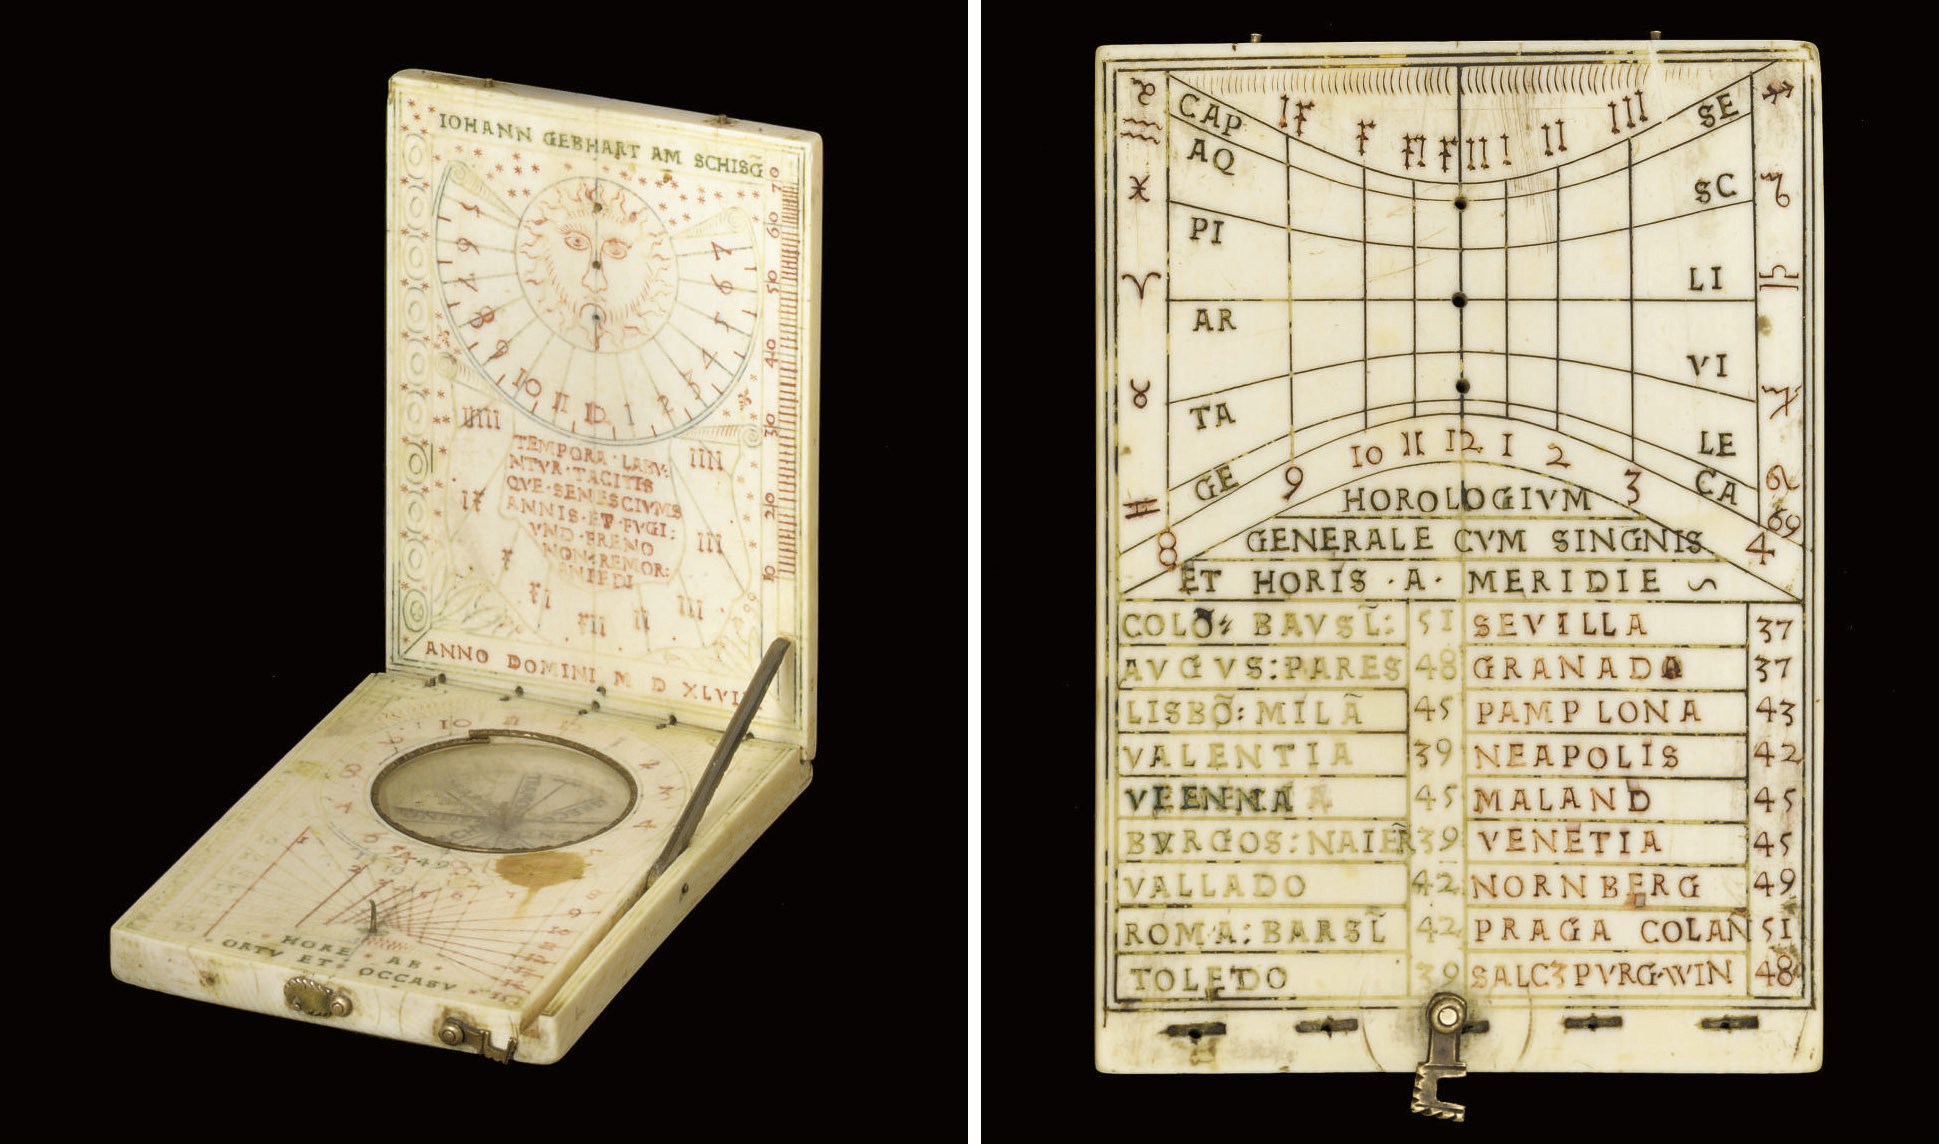 IOHANN GEBHART AM SCHISG̃
70
60
50
40
30
20
10
5 6 7 8 9 10 11 12 1 2 3 4 5 6 7
TEMPORA · LABV:
NTVR · TACITIS
QVE · SENESCIVMS
ANNIS · ET · FVGI:
VND · FRENO
NON · REMOR:
ANNO DOMINI M D XLVII
HORE · AB
ORTV ET · OCCASV
CAP
SE
AQ
SC
PI
LI
AR
VI
TA
LE
GE
CA
9 10 11 12 1 2 3
8 4
HOROLOGIVM
GENERALE CVM SINGNIS
ET HORIS · A · MERIDIE
COLÕ: BAVSL̃: 51 SEVILLA 37
AVGVS: PARES 48 GRANADA 37
LISBÕ: MILÃ 45 PAMPLONA 43
VALENTIA 39 NEAPOLIS 42
VIENNA 45 MALAND 45
BVRGOS: NAIER̃ 39 VENETIA 45
VALLADO 42 NORNBERG 49
ROMA: BARSL̃ 42 PRAGA COLAÑ 51
TOLEDO 39 SALCZPVRG·WIN 48